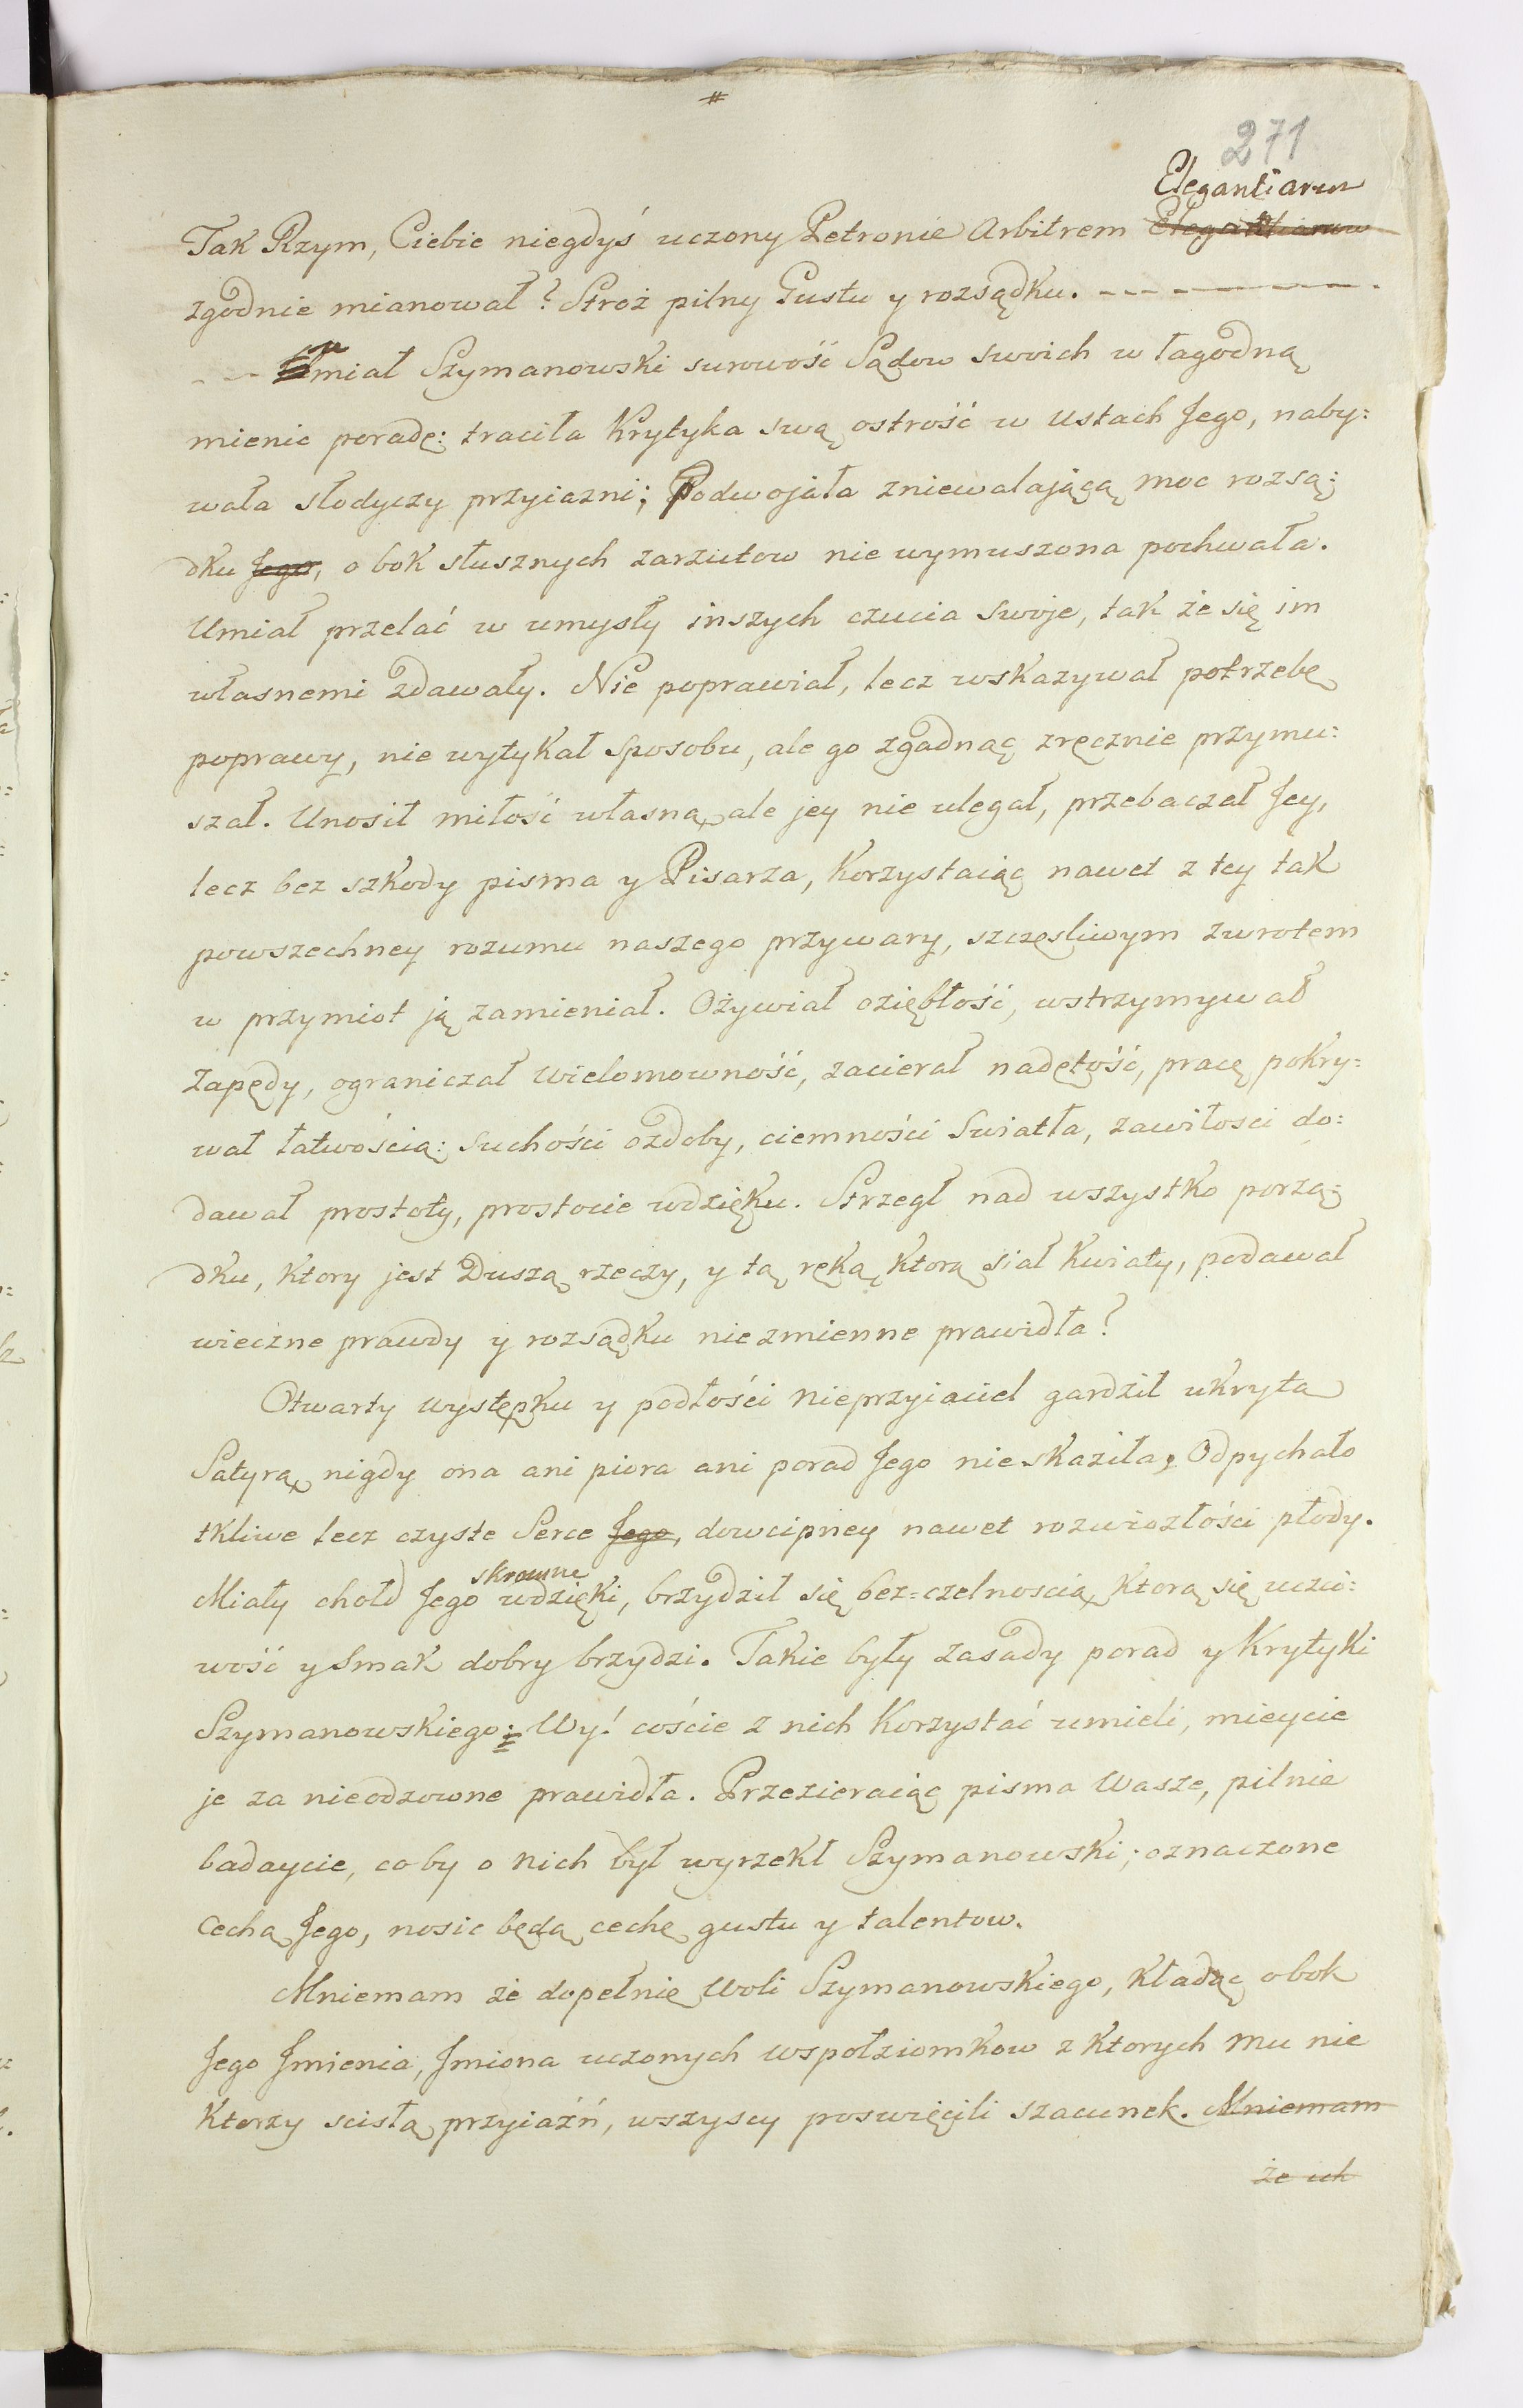 #
271
Elegantiarum
Tak Rzym, Ciebie niegdyś uczony Petronie Arbitrem Elegantiarum
zgodnie mianował? Stroż pilny Gustu y rozsądku. - - - - - - - - .
- - Umiał Szymanowski surowość Sądow swoich w łagodną
mienic poradę: traciła Krytyka swą ostrość w ustach Jego, naby:
wała słodyczy przyiazni; Podwojała zniewalającą moc rozsą:
dku Jego, o bok słusznych zarzutow nie wymuszona pochwała.
Umiał przelać w umysły inszych czucia swoje, tak że się im
własnemi zdawały. Nie poprawiał, lecz wskazywał potrzebę
poprawy, nie wytykał sposobu, ale go zgadnąć zręcznie przymu:
szał. Unosił miłość własną, ale jey nie ulegał, przebaczał Jey,
lecz bez szkody pisma y Pisarza, Korzystaiąc nawet z tey tak
powszechney rozumu naszego przywary, szczęsliwym zwrotem
w przymiot ją zamieniał. Ożywiał oziębłość, wstrzymywał
zapędy, ograniczał wielomowność, zacierał nadętość, pracę pokry:
wał łatwością: suchości ozdoby, ciemności Swiatła, zawiłosci do:
dawał prostoty, prostocie wdzięku. Strzegł nad wszystko porzą:
dku, Ktory jest Duszą rzeczy, y tą ręką, Ktorą siał Kwiaty, podawał
wieczne prawdy y rozsądku niezmienne prawidła?
Otwarty występku y podłości nieprzyiaciel gardził ukrytą
Satyrą, nigdy ona ani piora ani porad Jego nieskaziła, Odpychało
tkliwe lecz czyste Serce Jego, dowcipney nawet rozwiozłości płody.
skromne
Miały chołd Jego wdzięki, brzydził się bez=czelnoscią, Ktorą się uczci:
wość y Smak dobry brzydzi. Takie były zasady porad y Krytyki
Szymanowskiego: Wy! coście z nich Korzystać umieli, mieycie
je za nieodzowne prawidła. Przezieraiąc pisma Wasze, pilnie
badaycie, coby o nich był wyrzekł Szymanowski; oznaczone
Cechą Jego, nosic będą cechę gustu y talentow.
Mniemam że dopełnię Woli Szymanowskiego, Kładąc obok
Jego Jmienia, Jmiona uczonych wspołziomkow z Ktorych mu nie
Ktorzy scisłą przyiaźń, wszyscy poswięcili szacunek. Mniemam
że ich